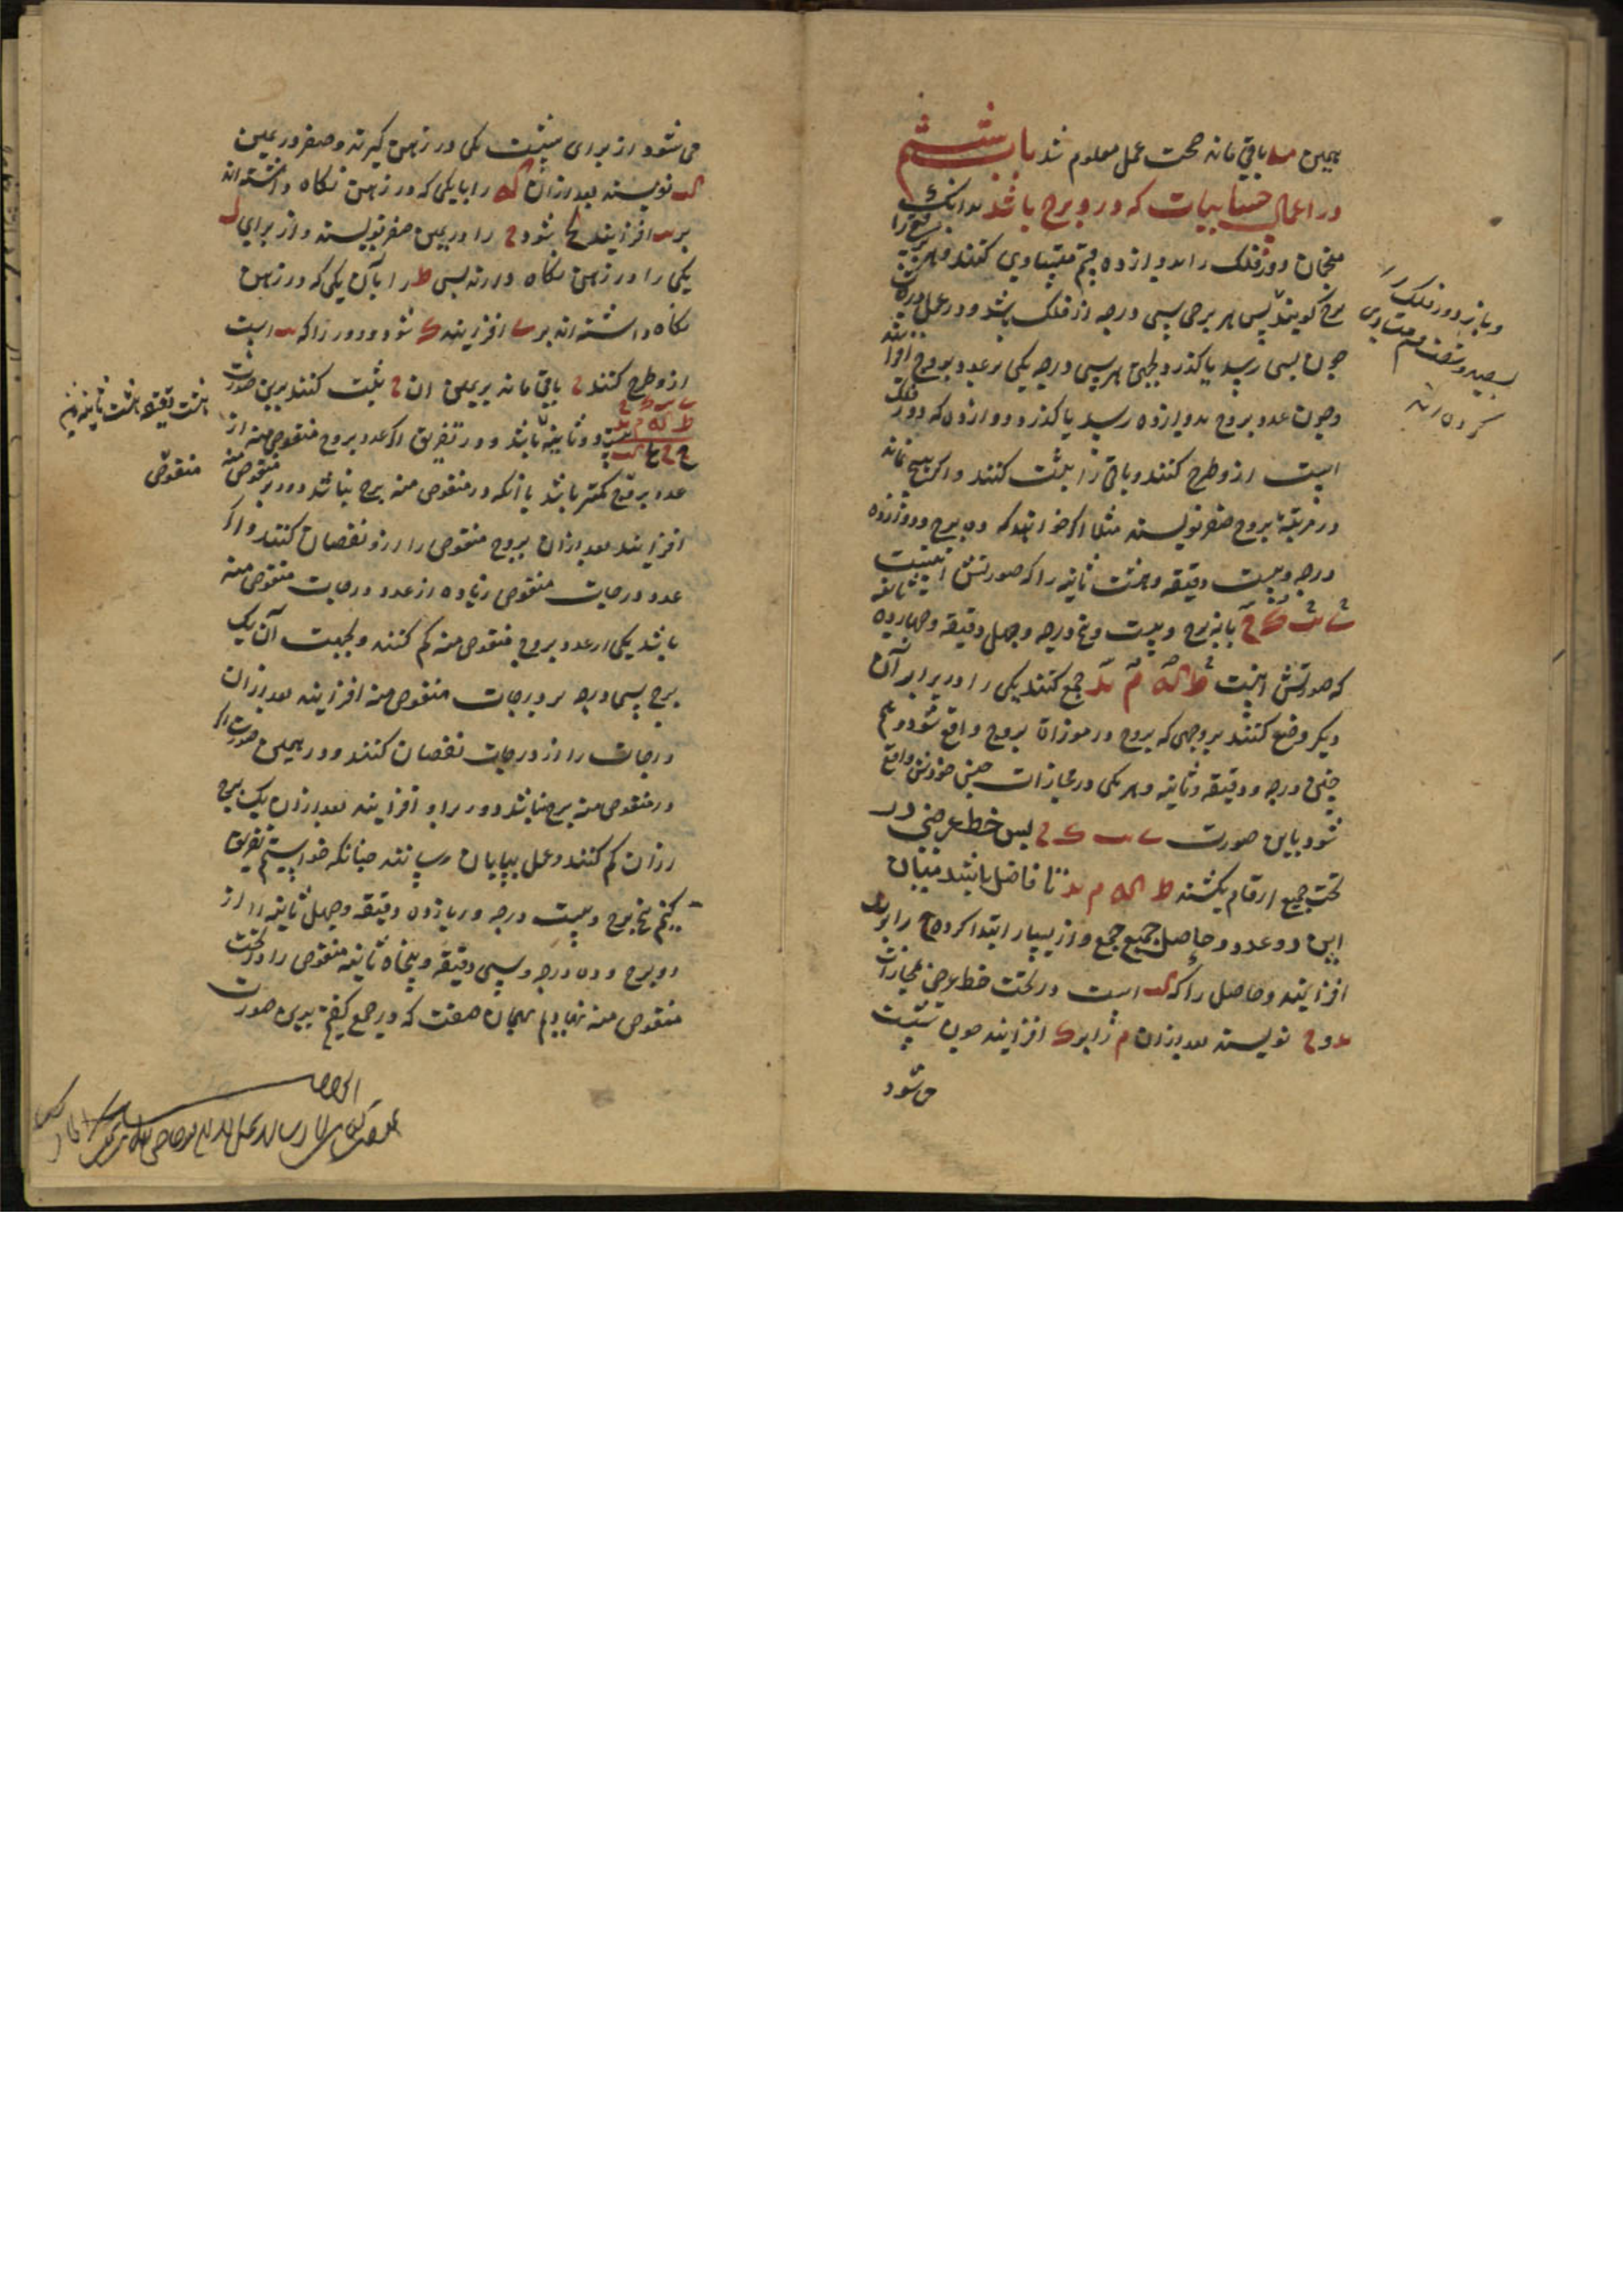 همین مد باقی ماند صحت عمل معلوم شد باب ششم
در اعمال حسابیات که در و برج باشد بدانک
منجمان دور فلک را بدوازده قسم متساوی کنند و هر قسم را
برج گویند پس هر برجی سی درجه از فلک باشد و در عمل درجات
چون بسی رسد یا گذرد بجهت هر سی درجه یکی بر عدد بروج افزایند
و چون عدد بروج بدوازده رسد یا گذرد دوازده که دور فلک
است ازو طرح کنند و باقی را ثبت کنند و اگر هیچ نماند
در مرتبه بروج صفر نویسند مثلا اگر خواهند که ده برج و دوازده
درجه و بیست دقیقه و هشت ثانیه را که صورتش اینست
ی یب ک ح با نه برج و بیست و پنج درجه و چهل دقیقه و چهارده ثانیه
که صورتش اینست ط که م ید جمع کنند یکی را در برابر آن
دیگر وضع کنند بر وجهی که بروج در موازات بروج واقع شود و هم
چنین درجه و دقیقه و ثانیه و هر یکی در محاذات جنس خودش واقع
شود باین صورت ی یب ک ح پس خط عرضی در
تحت جمیع ارقام بکشند ط که م ید تا فاضل باشد میان
این دو عدد و حاصل جمع و از یسار ابتدا کرده ح را بر ید
افزایند و حاصل را که کب است در تحت خط عرضی محاذات
ید و ح نویسند بعد ازان م را بر ک افزایند چون شصت
می شود
و باز دور فلک را
بسیصد و شصت قسم متساوی
کرده اند
می شود از برای شصت یکی در ذهن گیرند و صفر در یمین
کب نویسند بعد ازان که را با یکی که در ذهن نگاه داشته اند
بر یب افزایند لح شود ح را در یمین صفر نویسند و از برای ل
یکی را در ذهن نگاه دارند پس ط را با آن یکی که در ذهن
نگاه داشته اند بر ی افزایند ک شود و دور را که یب است
ازو طرح کنند ح باقی ماند بر یمین ان ح ثبت کنند برین صورت
ی یب ک ح
ط که م ید
بیست و دو ثانیه باشد و در تفریق اگر عدد بروج منقوص منه از
عدد بروج کمتر باشد یا آنکه در منقوص منه برج نباشد دور بر منقوص منه
افزایند بعد ازان بروج منقوص را ازو نقصان کنند و اگر
عدد درجات منقوص زیاده از عدد درجات منقوص منه
باشد یکی از عدد بروج منقوص منه کم کنند و بجهت آن یک
برج سی درجه بر درجات منقوص منه افزایند بعد ازان
درجات را از درجات نقصان کنند و در همین صورت اگر
در منقوص منه برج نباشد دور برو افزایند بعد ازان یک برج
ازان کم کنند و عمل بپایان رسانند چنانکه خواستیم تفریق
کنیم پنج برج و بیست درجه و یازده دقیقه و چهل ثانیه را از
دو برج و ده درجه و سی دقیقه و پنجاه ثانیه منقوص را در تحت
منقوص منه نهادیم بهمان صفت که در جمع گفتم بدین صورت
هشت دقیقه هشت ثانیه
منقوص